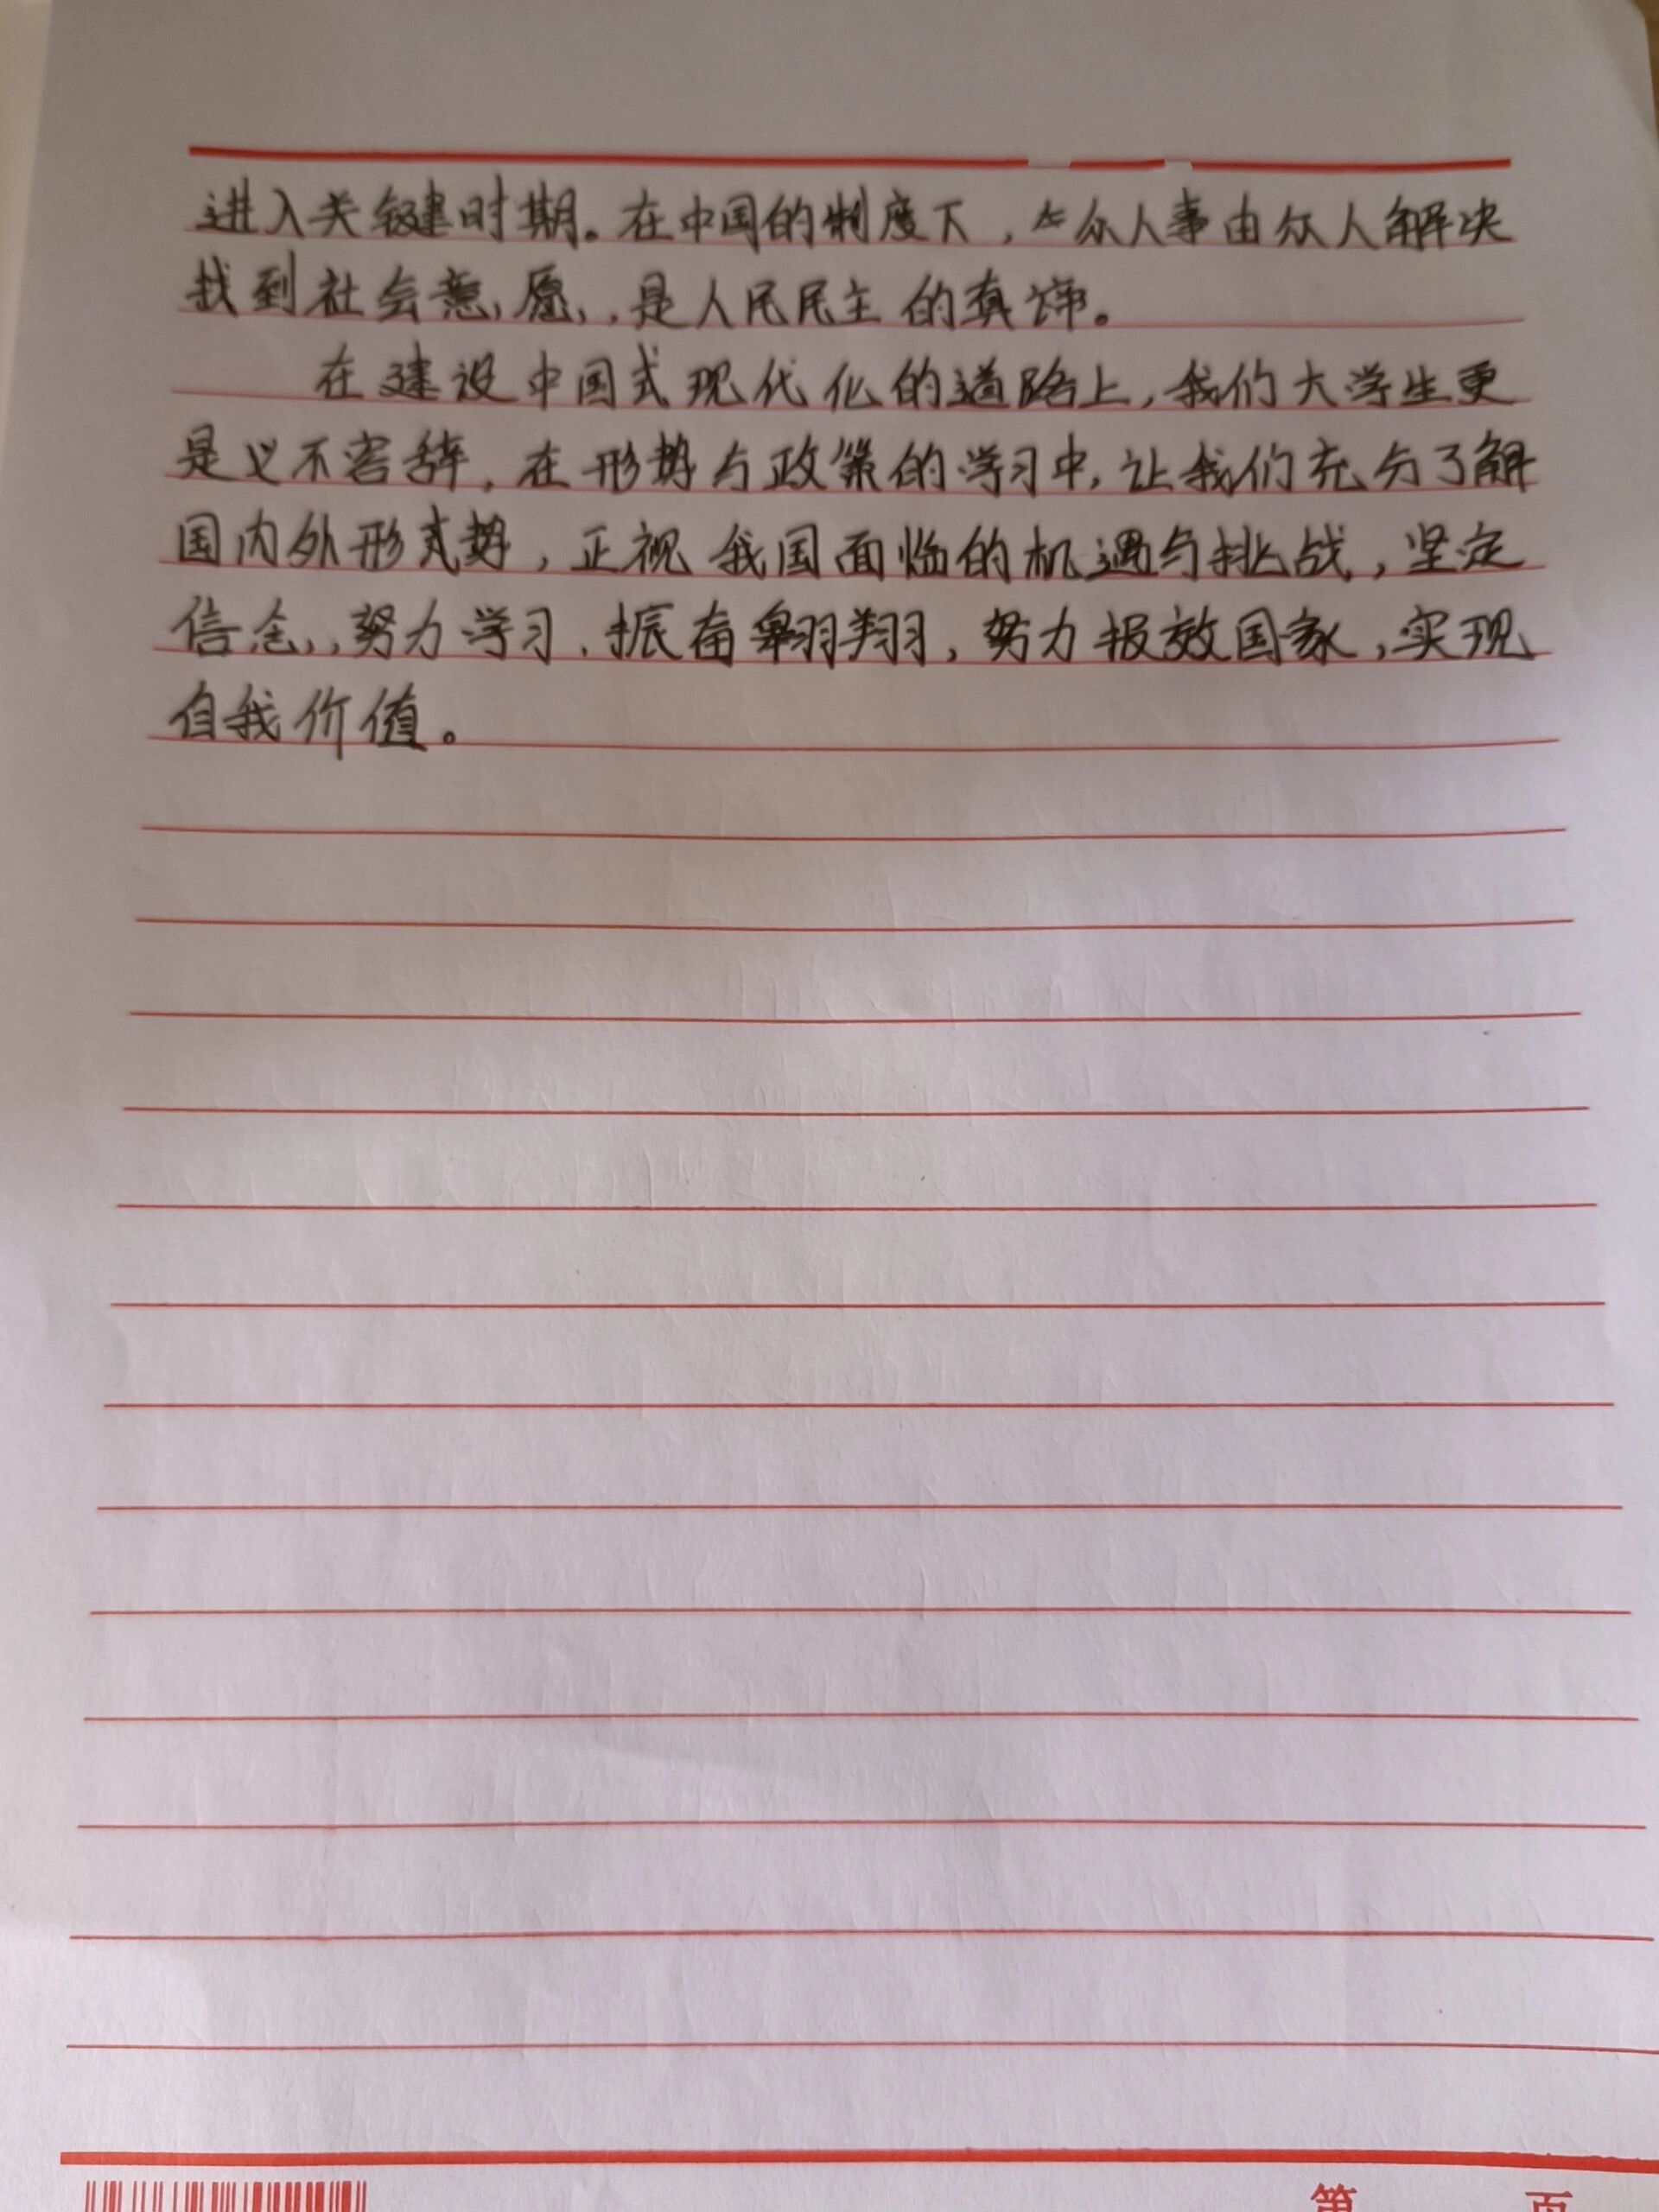 进入关键时期。在中国的制度下，众人事由众人解决
找到社会意愿，是人民民主的真谛。
在建设中国式现代化的道路上，我们大学生更
是义不容辞，在形势与政策的学习中，让我们充分了解
国内外形式势，正视我国面临的机遇与挑战，坚定
信念，努力学习，振奋翱翔，努力报效国家，实现
自我价值。
第 页